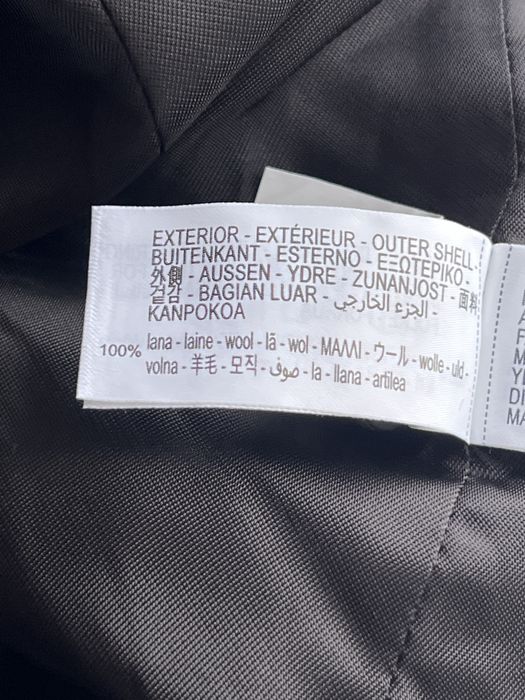 EXTERIOR - EXTÉRIEUR - OUTER SHELL -
BUITENKANT - ESTERNO - ΕΞΩΤΕΡΙΚΟ -
外側 - AUSSEN - YDRE - ZUNANJOST - 面料
겉감 - BAGIAN LUAR - الجزء الخارجي -
KANPOKOA
100% lana - laine - wool - lã - wol - ΜΑΛΛΙ - ウール - wolle - uld -
volna - 羊毛 - 모직 - صوف - la - llana - artilea